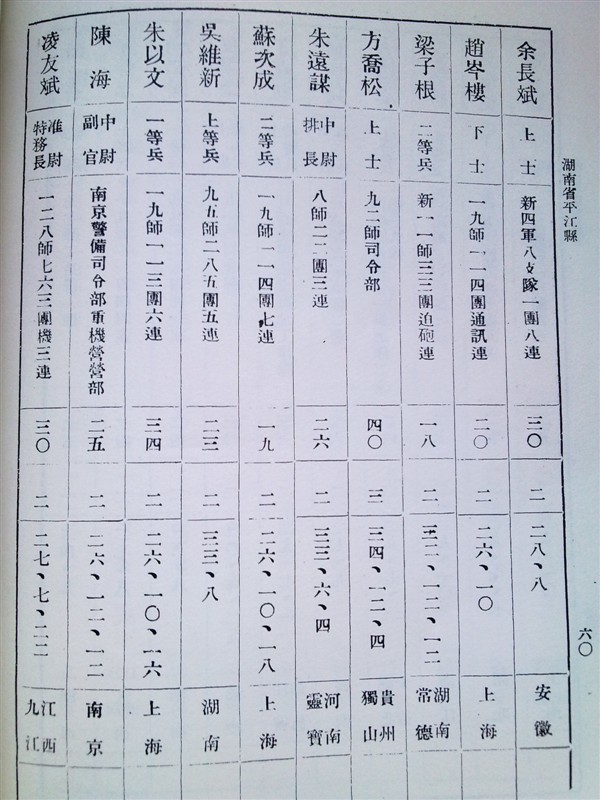 湖南省平江縣
六〇
余長斌 上士 新四軍八支隊一團八連 三〇 二 二八、八 安徽
趙岑樓 下士 一九師一一四團通訊連 二〇 二 二六、一〇 上海
梁子根 二等兵 新一一師三三團迫砲連 一八 二 三二、一二、一二 湖南常德
方喬松 上士 九二師司令部 四〇 三 三四、一二、四 貴州獨山
朱遠謀 中尉排長 八師二二團三連 二六 二 三三、六、四 河南靈寶
蘇次成 二等兵 一九師一一四團七連 一九 二 二六、一〇、一八 上海
吳維新 上等兵 九五師二八五團五連 二三 二 三三、八 湖南
朱以文 一等兵 一九師一一三團六連 三四 二 二六、一〇、一六 上海
陳海 中尉副官 南京警備司令部重機營營部 二五 二 二六、一二、一二 南京
凌友斌 准尉特務長 一二八師七六三團機三連 三〇 二 二七、七、二二 江西九江